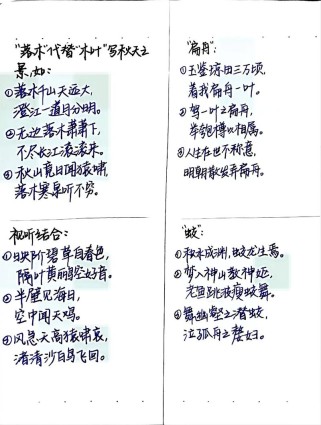 "落木"代替"木叶"写秋天之
景,如:
①落木千山天远大,
澄江一道月分明。
②无边落木萧萧下,
不尽长江滚滚来。
③秋山竟日闻猿啸,
落木寒泉听不穷。
"扁舟":
①玉鉴琼田三万顷,
着我扁舟一叶。
②驾一叶之扁舟,
举匏樽以相属。
③人生在世不称意,
明朝散发弄扁舟。
视听结合:
①映阶碧草自春色,
隔叶黄鹂空好音。
②半壁见海日,
空中闻天鸡。
③风急天高猿啸哀,
渚清沙白鸟飞回。
"蛟":
①积水成渊,蛟龙生焉。
②梦入神山教神妪,
老鱼跳波瘦蛟舞。
③舞幽壑之潜蛟,
泣孤舟之嫠妇。